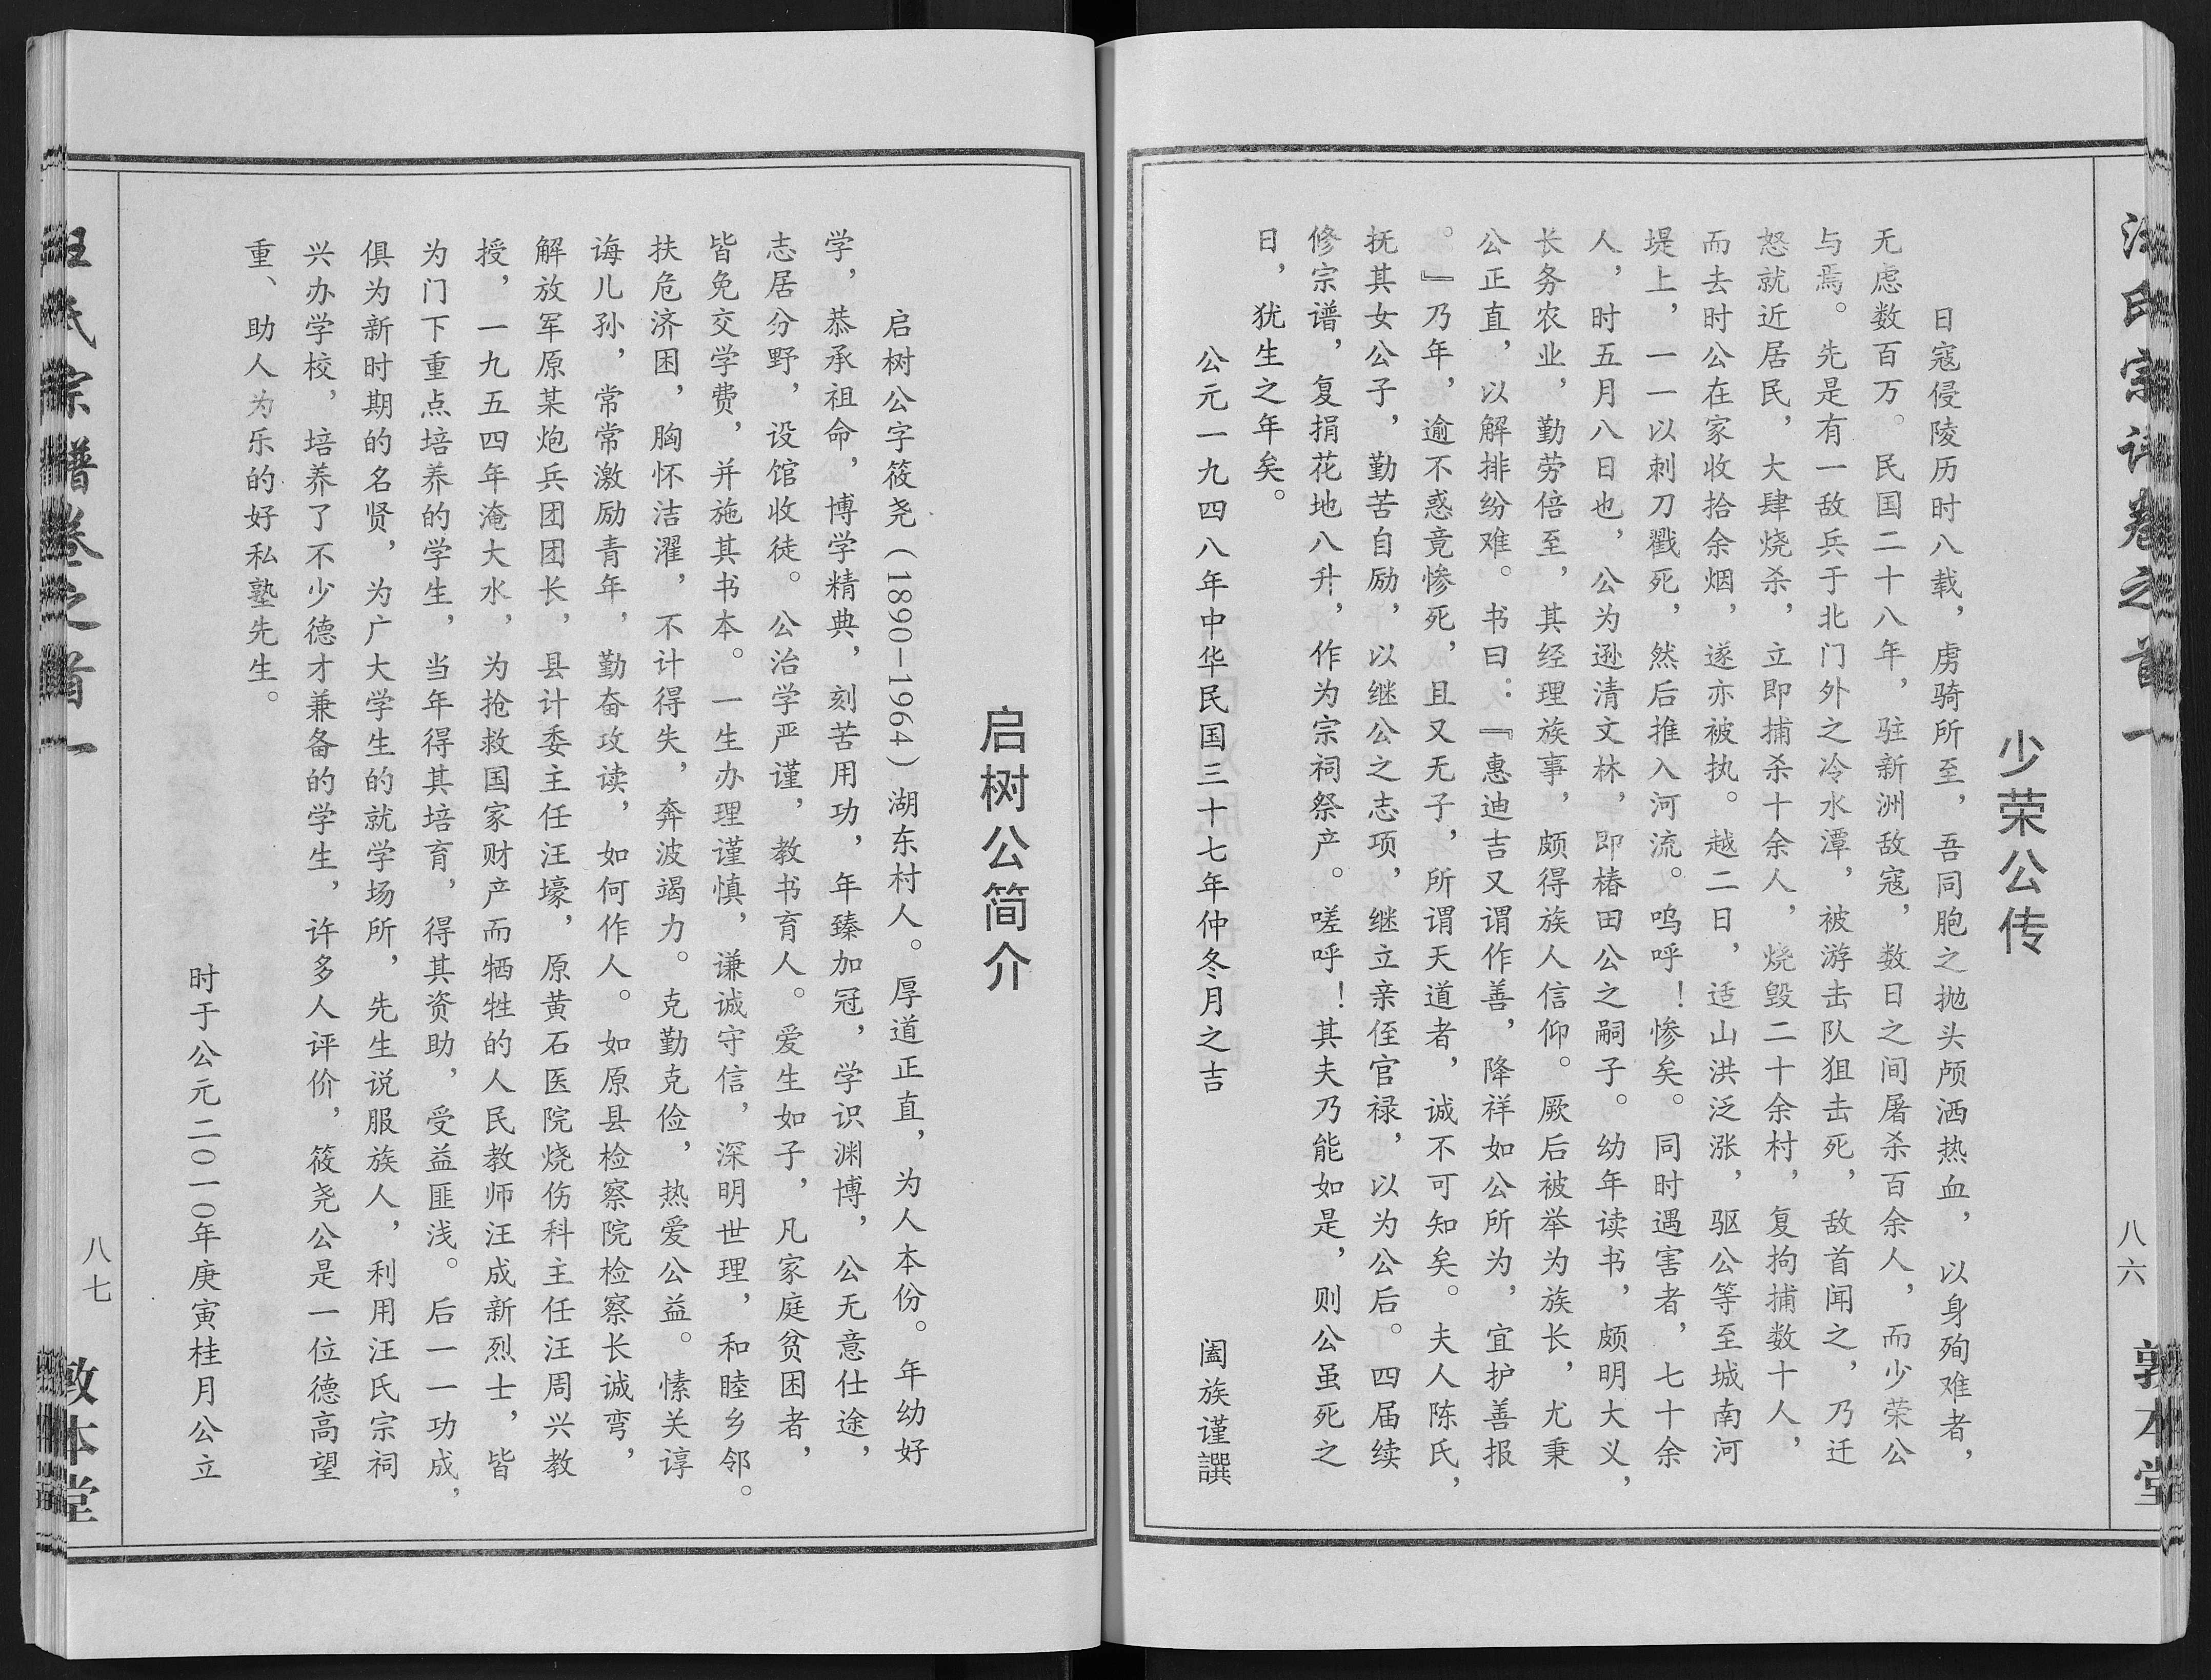 汪氏宗谱卷之首一
八六
敦本堂
少荣公传
日寇侵陵历时八载，虏骑所至，吾同胞之抛头颅洒热血，以身殉难者，
无虑数百万。民国二十八年，驻新洲敌寇，数日之间屠杀百余人，而少荣公
与焉。先是有一敌兵于北门外之冷水潭，被游击队狙击死，敌首闻之，乃迁
怒就近居民，大肆烧杀，立即捕杀十余人，烧毁二十余村，复拘捕数十人，
而去时公在家收拾余烟，遂亦被执。越二日，适山洪泛涨，驱公等至城南河
堤上，一一以刺刀戳死，然后推入河流。呜呼！惨矣。同时遇害者，七十余
人，时五月八日也，公为逊清文林，即椿田公之嗣子。幼年读书，颇明大义，
长务农业，勤劳倍至，其经理族事，颇得族人信仰。厥后被举为族长，尤秉
公正直，以解排纷难。书曰：『惠迪吉又谓作善，降祥如公所为，宜护善报
。』乃年，逾不惑竟惨死，且又无子，所谓天道者，诚不可知矣。夫人陈氏，
抚其女公子，勤苦自励，以继公之志项，继立亲侄官禄，以为公后。四届续
修宗谱，复捐花地八升，作为宗祠祭产。嗟呼！其夫乃能如是，则公虽死之
日，犹生之年矣。
公元一九四八年中华民国三十七年仲冬月之吉 阖族谨譔
启树公简介
启树公字筱尧（1890-1964）湖东村人。厚道正直，为人本份。年幼好
学，恭承祖命，博学精典，刻苦用功，年臻加冠，学识渊博，公无意仕途，
志居分野，设馆收徒。公治学严谨，教书育人。爱生如子，凡家庭贫困者，
皆免交学费，并施其书本。一生办理谨慎，谦诚守信，深明世理，和睦乡邻。
扶危济困，胸怀洁濯，不计得失，奔波竭力。克勤克俭，热爱公益。愫关谆
诲儿孙，常常激励青年，勤奋攻读，如何作人。如原县检察院检察长诚弯，
解放军原某炮兵团团长，县计委主任汪壕，原黄石医院烧伤科主任汪周兴教
授，一九五四年淹大水，为抢救国家财产而牺牲的人民教师汪成新烈士，皆
为门下重点培养的学生，当年得其培育，得其资助，受益匪浅。后一一功成，
俱为新时期的名贤，为广大学生的就学场所，先生说服族人，利用汪氏宗祠
兴办学校，培养了不少德才兼备的学生，许多人评价，筱尧公是一位德高望
重、助人为乐的好私塾先生。
时于公元二〇一〇年庚寅桂月公立
汪氏宗谱卷之首一
八七
敦本堂